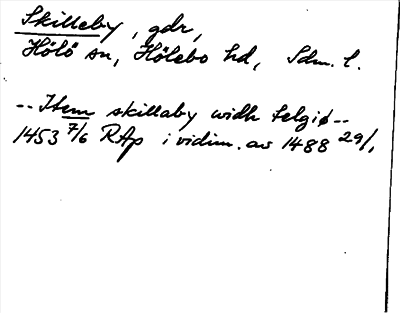 Skilleby, gdr,
Hölö sn, Hölebo hd, Sdm. l.
-- Item skillaby widh Selgiø --
1453 7/6 RAp i vidim. av 1488 29/1